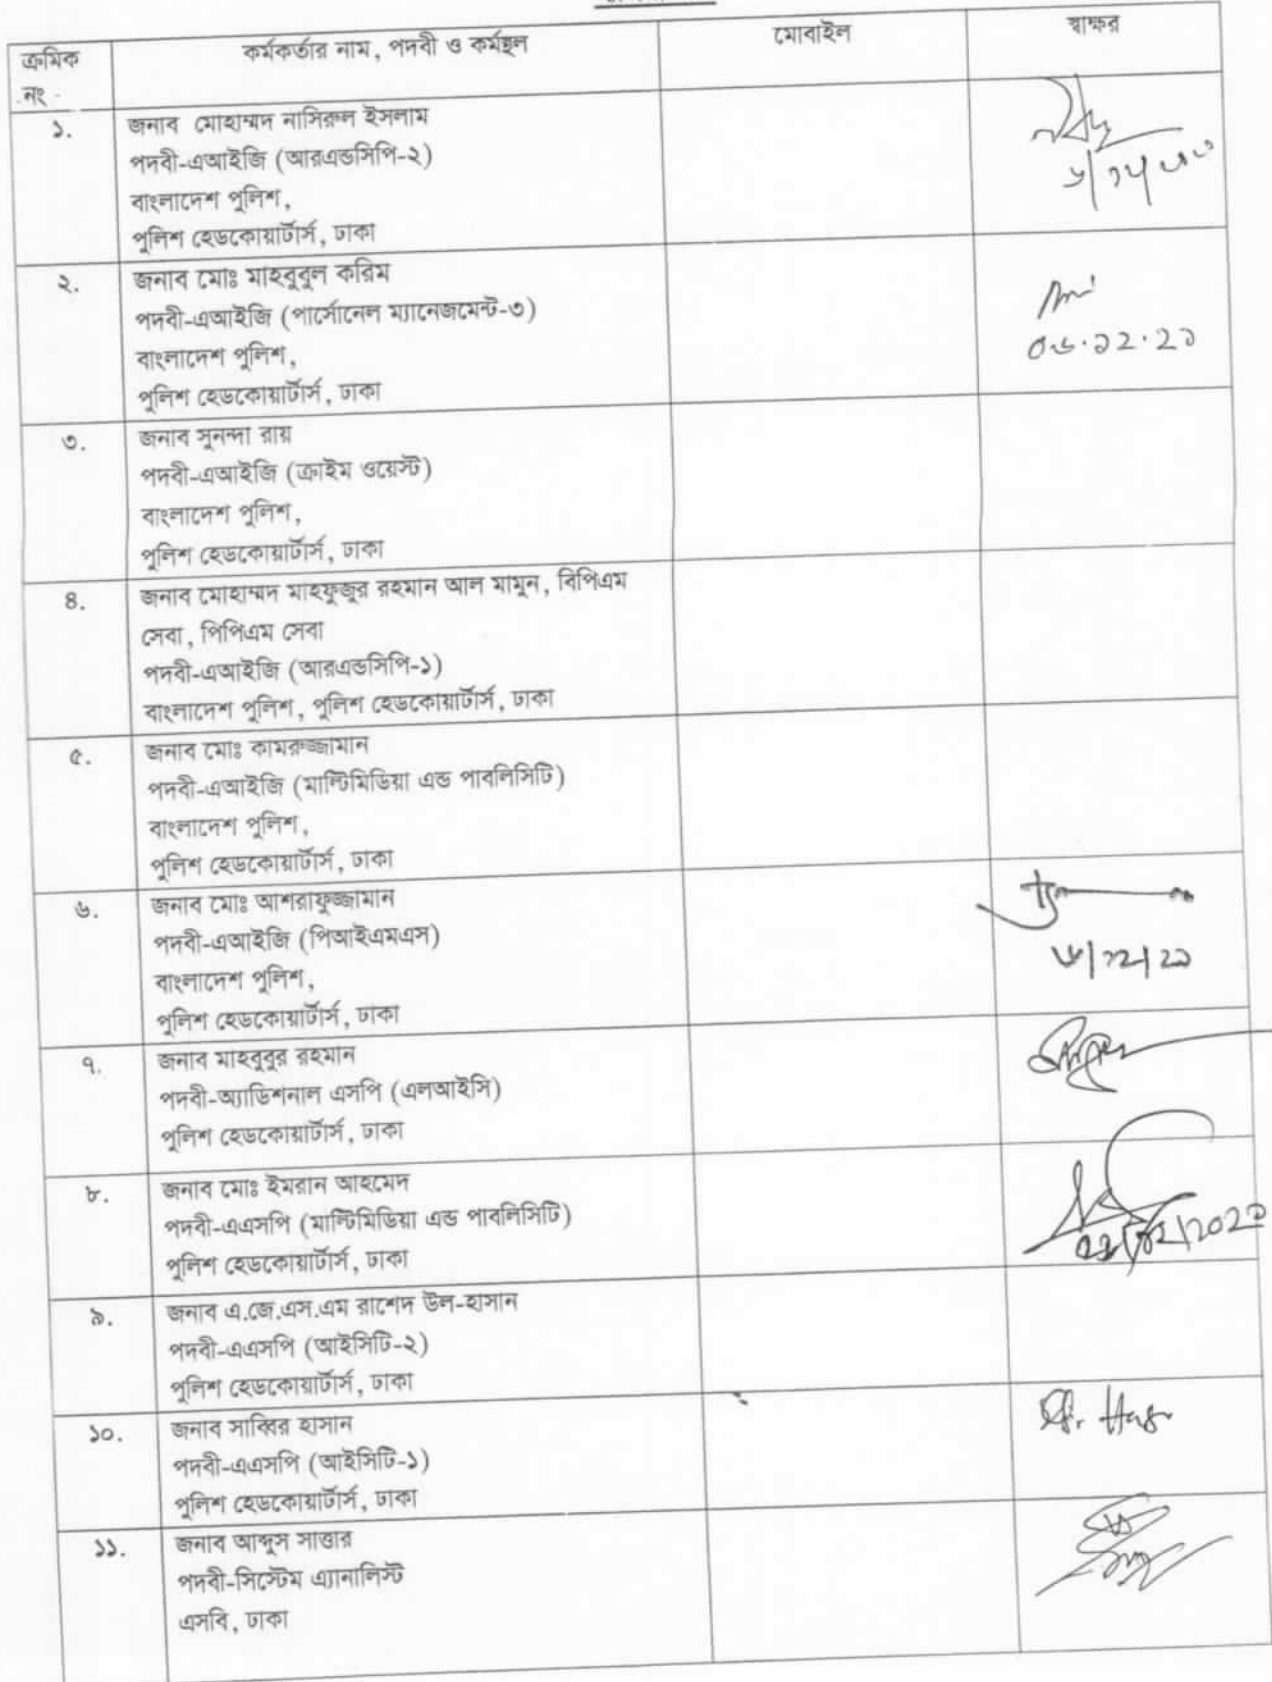 ক্রমিক নং
কর্মকর্তার নাম, পদবী ও কর্মস্থল
মোবাইল
স্বাক্ষর
১.
জনাব মোহাম্মদ নাসিরুল ইসলাম
পদবী-এআইজি (আরএন্ডসিপি-২)
বাংলাদেশ পুলিশ,
পুলিশ হেডকোয়ার্টার্স, ঢাকা
২.
জনাব মোঃ মাহবুবুল করিম
পদবী-এআইজি (পার্সোনেল ম্যানেজমেন্ট-৩)
বাংলাদেশ পুলিশ,
পুলিশ হেডকোয়ার্টার্স, ঢাকা
০৬.১২.২১
৩.
জনাব সুনন্দা রায়
পদবী-এআইজি (ক্রাইম ওয়েস্ট)
বাংলাদেশ পুলিশ,
পুলিশ হেডকোয়ার্টার্স, ঢাকা
৪.
জনাব মোহাম্মদ মাহফুজুর রহমান আল মামুন, বিপিএম
সেবা, পিপিএম সেবা
পদবী-এআইজি (আরএন্ডসিপি-১)
বাংলাদেশ পুলিশ, পুলিশ হেডকোয়ার্টার্স, ঢাকা
৫.
জনাব মোঃ কামরুজ্জামান
পদবী-এআইজি (মাল্টিমিডিয়া এন্ড পাবলিসিটি)
বাংলাদেশ পুলিশ,
পুলিশ হেডকোয়ার্টার্স, ঢাকা
৬.
জনাব মোঃ আশরাফুজ্জামান
পদবী-এআইজি (পিআইএমএস)
বাংলাদেশ পুলিশ,
পুলিশ হেডকোয়ার্টার্স, ঢাকা
৬/১২/২১
৭.
জনাব মাহবুবুর রহমান
পদবী-অ্যাডিশনাল এসপি (এলআইসি)
পুলিশ হেডকোয়ার্টার্স, ঢাকা
৮.
জনাব মোঃ ইমরান আহমেদ
পদবী-এএসপি (মাল্টিমিডিয়া এন্ড পাবলিসিটি)
পুলিশ হেডকোয়ার্টার্স, ঢাকা
৯.
জনাব এ.জে.এস.এম রাশেদ উল-হাসান
পদবী-এএসপি (আইসিটি-২)
পুলিশ হেডকোয়ার্টার্স, ঢাকা
১০.
জনাব সাব্বির হাসান
পদবী-এএসপি (আইসিটি-১)
পুলিশ হেডকোয়ার্টার্স, ঢাকা
১১.
জনাব আব্দুস সাত্তার
পদবী-সিস্টেম এ্যানালিস্ট
এসবি, ঢাকা